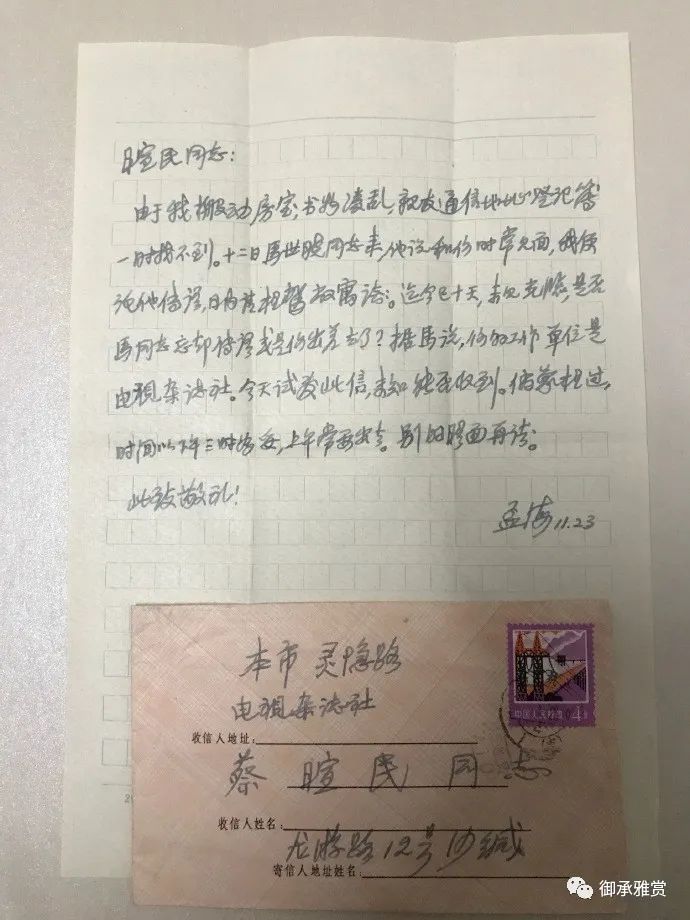 暄民同志：
由于我搬动房室，书物凌乱，亲友通信地址登记簿
一时找不到。十二日马世晓同志来，他说和你时常见面，我便
托他传语，日内莅杭暂敝寓谈。迄今已十天，未见光临，是否
马同志忘却传语或是你出差去了？据马说，你的工作单位是
电视杂志社。今天试发此信，未知能否收到。倘蒙枉过，
时间以下午三时为妥，上午常要出去。别的晤面再谈。
此致敬礼！
孟海 11.23
本市 灵隐路
电视杂志社
收信人地址：
蔡暄民同志
收信人姓名：
龙游路12号沙缄
寄信人地址姓名：
中国人民邮政 4分
御承雅赏